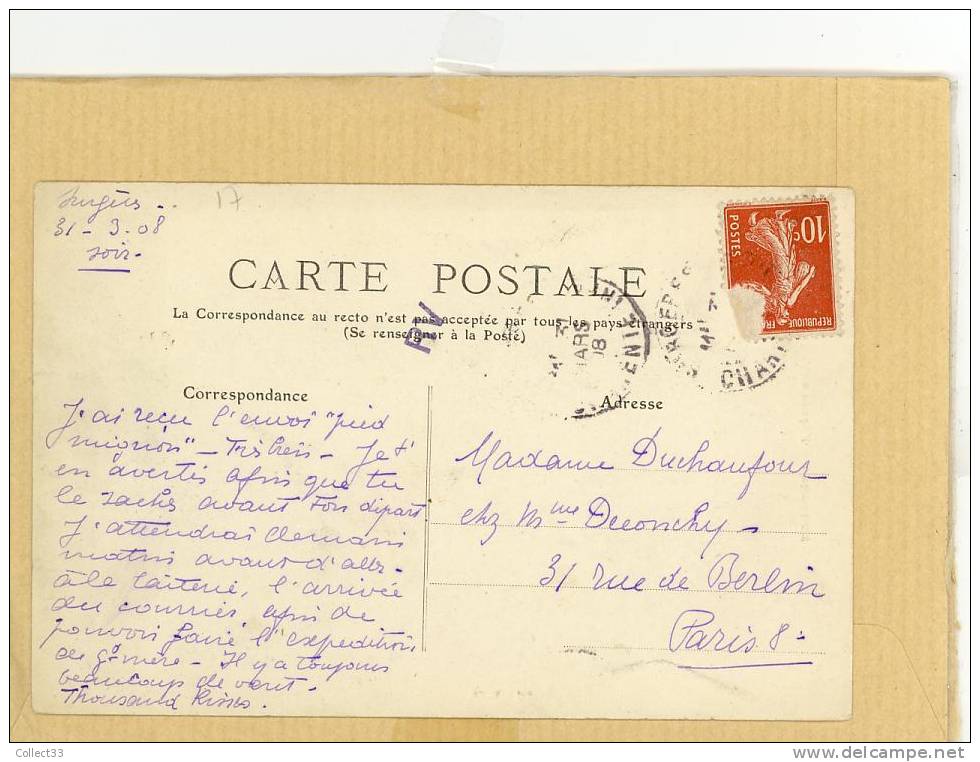 Surgères..
17.
31-3-08
soir-
10c
POSTES
REPUBLIQUE
CARTE POSTALE
La Correspondance au recto n'est pas acceptée par tous les pays étrangers
(Se renseigner à la Poste)
RV
MARS
08
Correspondance
J'ai reçu l'envoi "pied
mignon" - Très bien - Je t'
en avertis afin que tu
le saches avant ton départ
J'attendrai demain
matin avant d'aller
à la laiterie, l'arrivée
du courrier, afin de
pouvoir faire l'expédition
de gd mère - Il y a toujours
beaucoup de vent -
Thousand Kisses.
Adresse
Madame Duchaufour
chez Mme Deconchy -
31 rue de Berlin
Paris 8e
Collect33
www.delcampe.net